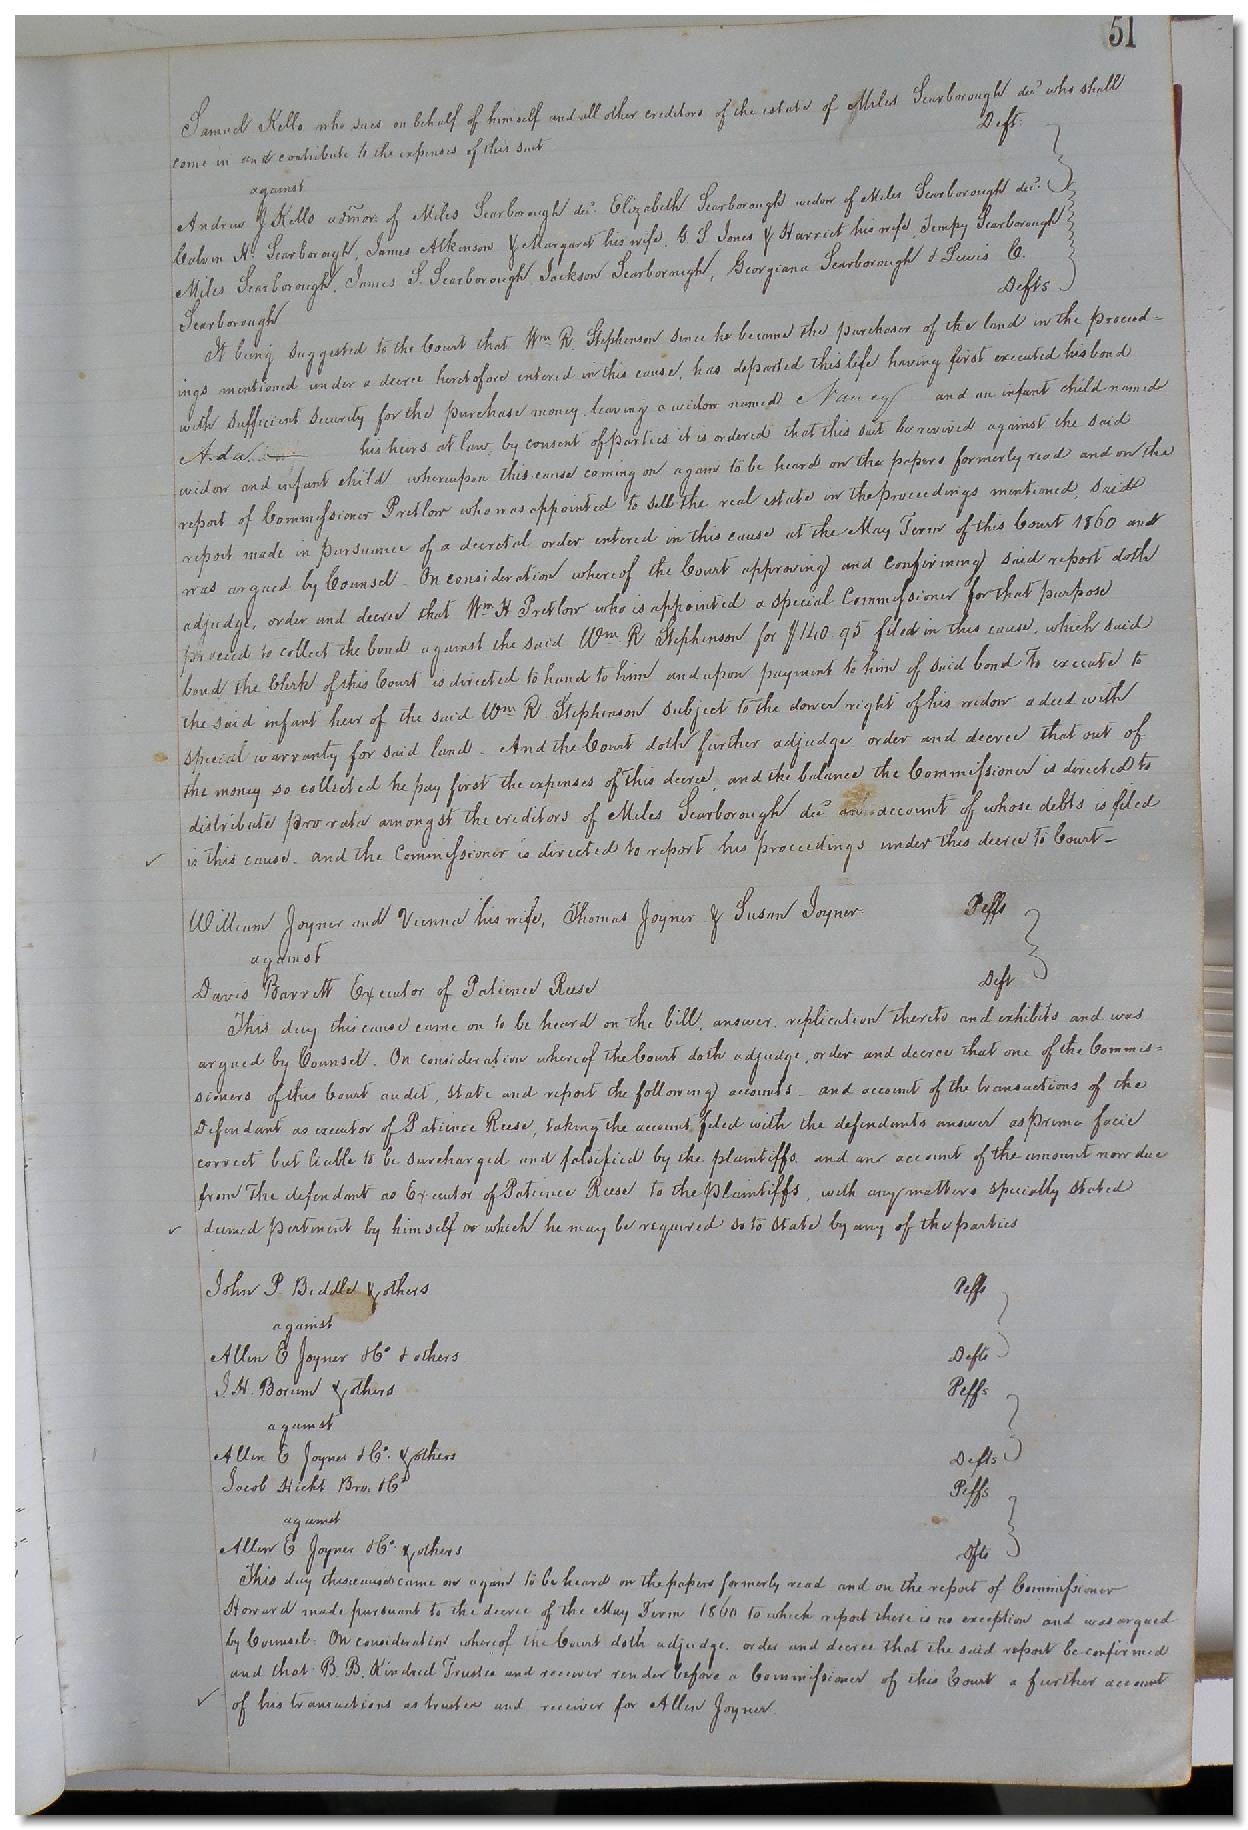 51
Samuel Kello who sues on behalf of himself and all other creditors of the estate of Miles Scarborough decd who shall
come in and contribute to the expenses of this suit Deft.
against
Andrew J Kello admor. of Miles Scarborough decd. Elizabeth Scarborough widow of Miles Scarborough decd.
Calvin H. Scarborough, James Atkinson & Margaret his wife, G. S. Jones & Harriet his wife, Tempy Scarborough
Miles Scarborough, James S. Scarborough, Jackson Scarborough, Georgiana Scarborough & Lewis C.
Scarborough Defts
It being suggested to the Court that Wm R Stephenson since he became the purchaser of the land in the proceed-
ings mentioned under a decree heretofore entered in this cause, has departed this life having first executed his bond
with sufficient security for the purchase money, leaving a widow named Nancy and an infant child named
Ada his heirs at law, by consent of parties it is ordered that this suit be revived against the said
widow and infant child whereupon this cause coming on again to be heard on the papers formerly read and on the
report of Commissioner Pretlow who was appointed to sell the real estate in the proceedings mentioned, said
report made in pursuance of a decretal order entered in this cause at the May Term of this Court 1860 and
was argued by Counsel. On consideration whereof the Court approving and confirming said report doth
adjudge, order and decree that Wm H Pretlow who is appointed a special Commissioner for that purpose
proceed to collect the bond against the said Wm R Stephenson for $140.95 filed in this cause, which said
bond the Clerk of this Court is directed to hand to him and upon payment to him of said bond to execute to
the said infant heir of the said Wm R. Stephenson subject to the dower right of his widow a deed with
special warranty for said land. And the Court doth further adjudge order and decree that out of
the money so collected he pay first the expenses of this decree, and the balance the Commissioner is directed to
distribute pro rata amongst the creditors of Miles Scarborough decd an account of whose debts is filed
in this cause. and the Commissioner is directed to report his proceedings under this decree to Court-
William Joyner and Vienna his wife, Thomas Joyner & Susan Joyner Peffs
against
Davis Barrett Executor of Patience Reese Deft
This day this cause came on to be heard on the bill, answer, replication thereto and exhibits and was
argued by Counsel. On consideration whereof the Court doth adjudge, order and decree that one of the Commis=
sioners of this Court audit, state and report the following accounts. and account of the transactions of the
Defendant as executor of Patience Reese, taking the account filed with the defendants answer as prima facie
correct but liable to be surcharged and falsified by the plaintiffs. and an account of the amount now due
from the defendant as Executor of Patience Reese to the plaintiffs, with any matters specially stated
deemed pertinent by himself or which he may be required so to state by any of the parties
John P. Biddle & others Peffs
against
Allen E Joyner & Co & others Defts
J. H. Borum & others Peffs
against
Allen E Joyner & Co. & others Defts
Jacob Hicht Bro. & Co Peffs
against
Allen E Joyner & Co. & others Dfts
This day these causes came on again to be heard on the papers formerly read and on the report of Commissioner
Howard made pursuant to the decree of the May Term 1860 to which report there is no exception and was argued
by Counsel. On consideration whereof the Court doth adjudge, order and decree that the said report be confirmed
and that B. B. Kindred Trustee and receiver render before a Commissioner of this Court a further account
of his transactions as trustee and receiver for Allen Joyner.